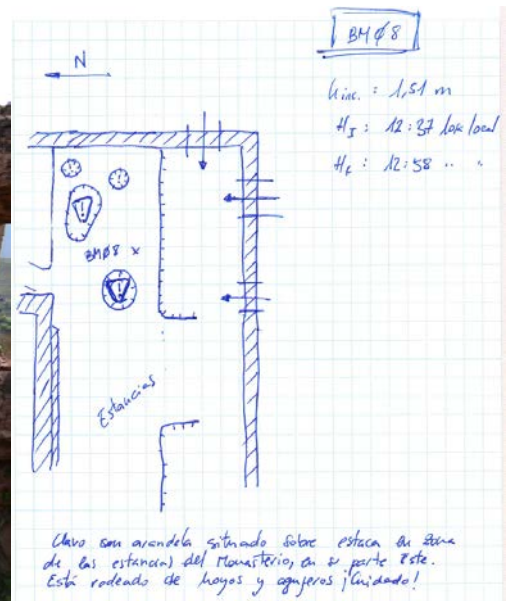 BMØ8
N
h inc. : 1,51 m
HI : 12:37 hora local
Hf : 12:58 " "
BMØ8 x
Estancias
Clavo con arandela situado sobre estaca en zona
de las estancias del Monasterio, en su parte Este.
Está rodeado de hoyos y agujeros ¡Cuidado!